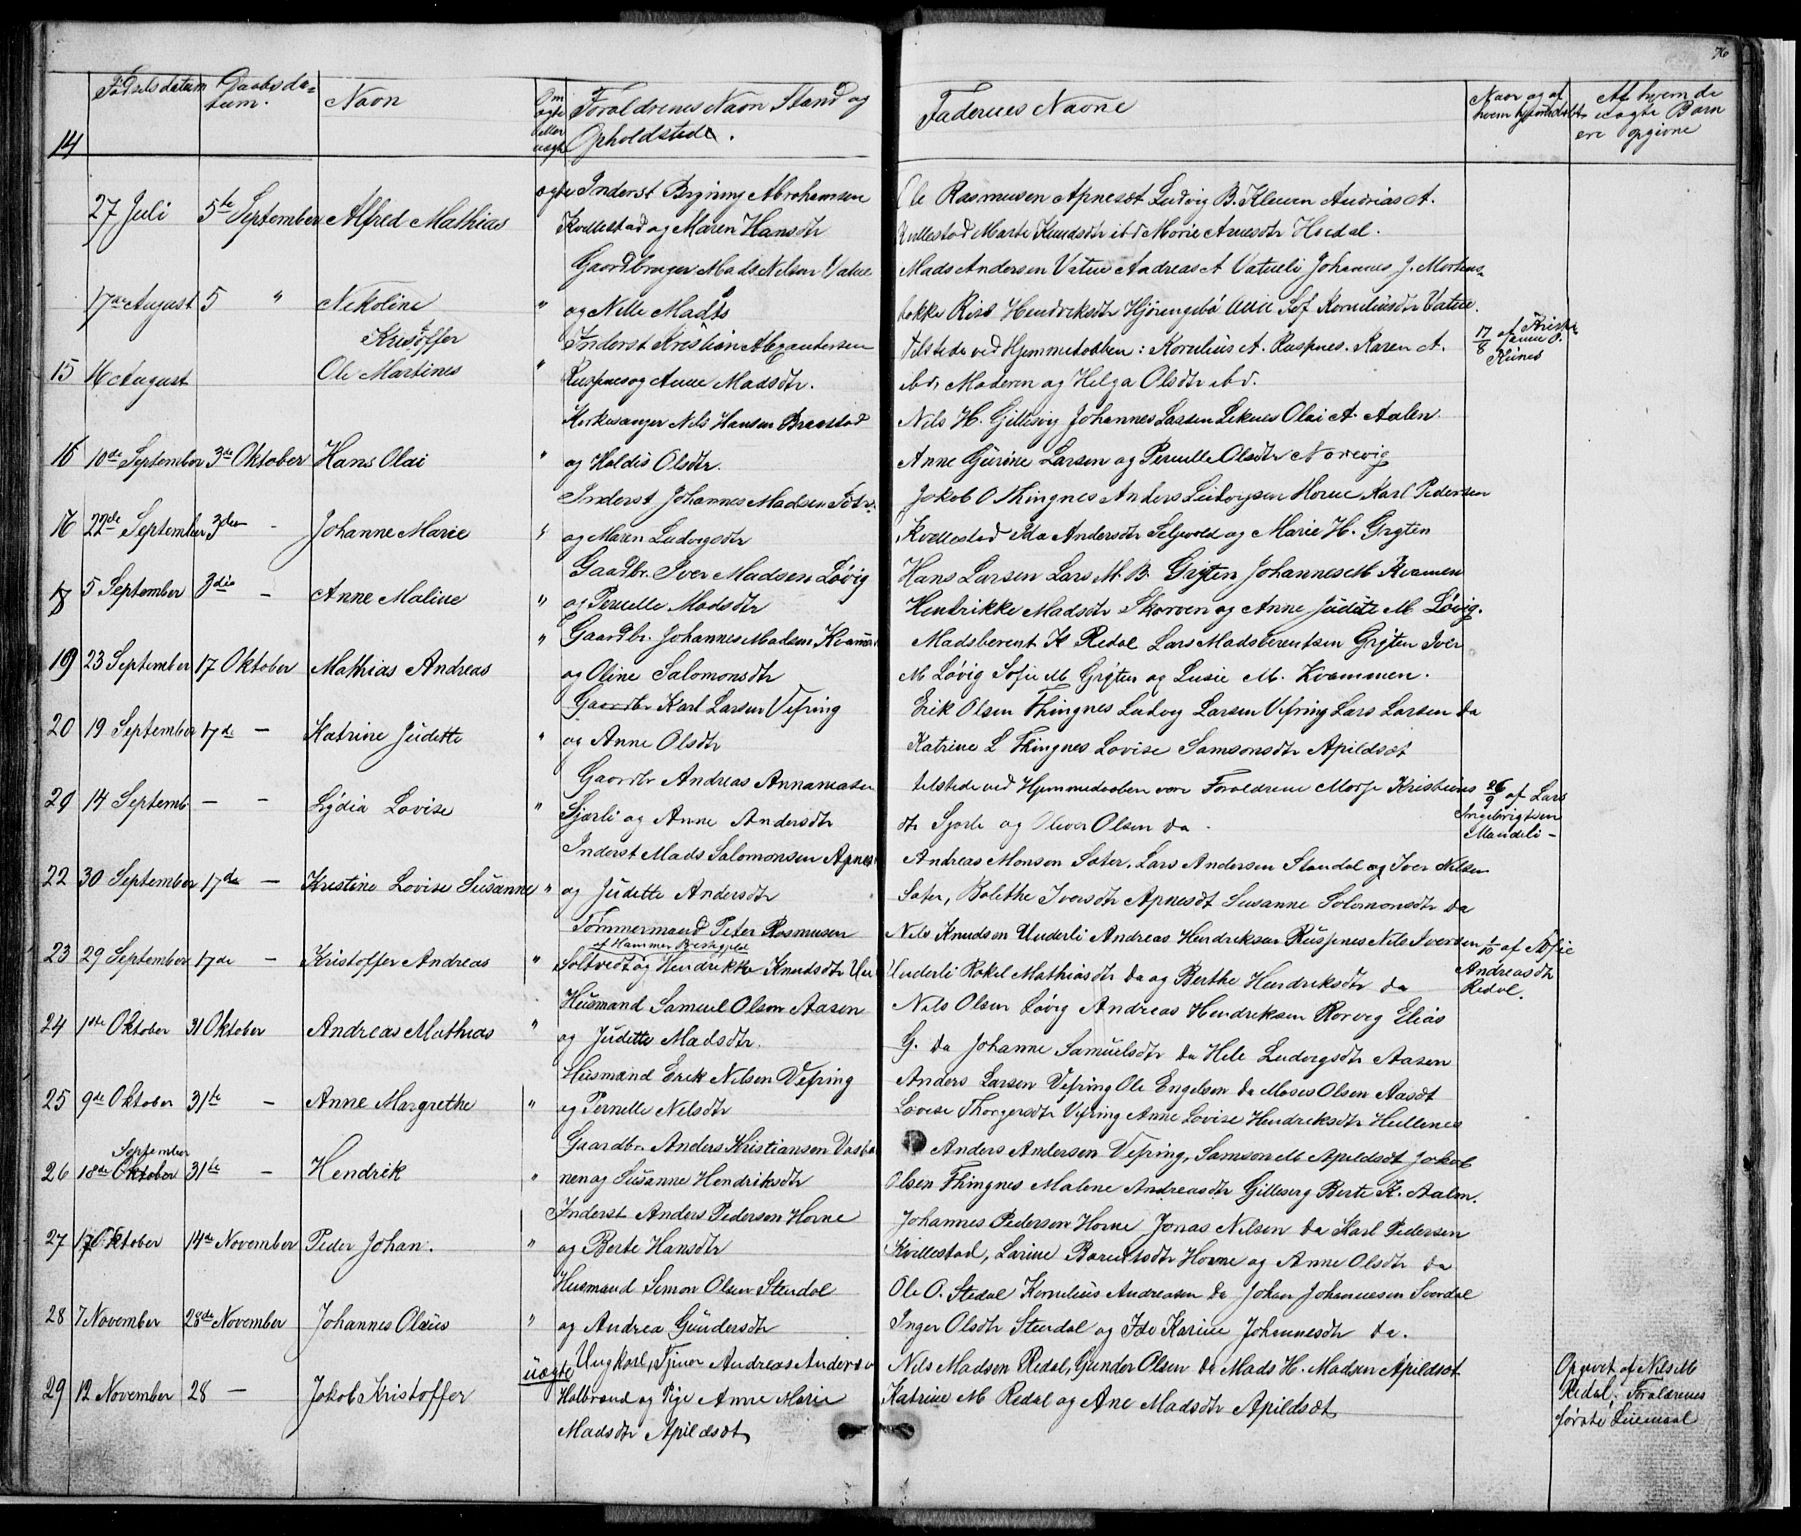 76
Fødselsdatum Daabsdatum. Navn Om ægte eller uægte Forældrenes Navn Stand og Opholdstede. Faderenes Navne Naar og af hvem hjemdøbt Af hvem de uægte Børn ere opgivne
14
27 Juli 5te September Alfred Mathias ægte Inderst Abrahamsen
Kvellestad og Maren Hansdtr
Ole Rasmusen Apneset Ludvig B. Andrias A.
Marte Knudsdtr ibd Marie Hiedal.
17de August 5 " Nikoline " Gaardbruger Mads Nelsen Vatne
og Nille Madts
Mads Andersen Vatne Andreas A Vatneli Johannes J. Mortens-
Hendriksdtr Sof Korneliusdtr Vatne.
15 16 August Kristoffer Ole Martines " Inderst Kristian
Ruspnes og Anne Madsdtr.
Tilstede ved Hjemmedaaben: Kornelius A. Ruspnes. Karen A.
ibd, Moderen og Helga Olsdtr ibd.
17/8 af
16 10de September 3de Oktober Hans Olai " Kirkesanger Nils Hansen
og Haldis Olsdtr.
Nils H. Gillesvig Johannes Larsen Olai A. Aalen
Anne Gurine Larsen og Pernille Olsdtr Norevig
16 22de September 3die - Johanne Marie " Inderst Johannes Madsen
og Maren Ludvigsdtr
Jakob O Thingnes Anders Ludvigsen Horne Karl Pedersen
Kvellestad Ida Andersdtr og Marie H. Gryten
18 5 September 3die - Anne Maline " Gaardbr. Iver Madsen Løvig
og Pernille Madsdtr
Hans Larsen Lars M. B. Gryten Johannes M Kvamen
Hendrikke Madsdtr Skorven og Anne Judit M. Løvig.
19 23 September 17 Oktober Mathias Andreas " Gaardbr. Johannes Madsen
og Oline Salomonsdtr
Madsberent K Redal Lars Madsberentsen Gryten Iver
M Løvig Sofie M Gryten og Lusie M. Kvammen.
20 19 September 17de - Katrine Judette " Gaardbr Karl Larsen Vefring
og Anne Olsdtr
Erik Olsen Thingnes Ludvig Larsen Vefring Lars Larsen da
Katrine L Thingnes Lovise Samsonsdtr Apildset
21 14 Septemb. - - Lydia Lovise " Gaardbr Andreas
Sjærli og Anne Andersdtr
tilstede ved Hjemmedaaben vare Forældrene Kristiens
dtr og Oliver Olsen da.
26/9 af Lars
Ingebrigtsen
22 30 September 17de - Kristine Lovise Susanne " Inderst Mads Salomonsen
og Judette Andersdtr
Andreas Monsen Sæter, Lars Andersen Standal og Iver Nilsen
Sæter, Bolethe Iversdtr Apnesdt Susanne Solomonsdtr da
23 29 September 17de - Kristoffer Andreas " Tømmermand Peter Rasmusen
af Hammer Prestegjeld
og Hendrikke Knudsdtr
Nils Knudsen Underli Andreas Hendriksen Ruspnes Nils Iversen
Underli Rakel Mathiasdtr da og Berthe Hendriksdtr da
1/10 af
Andreasdtr
Redal.
24 1ste Oktober 31 Oktober Andreas Mathias " Husmand Samuel Olsen Aasen
og Judette Madsdtr.
Nils Olsen Løvig Andreas Hendriksen Rorvig Elias
G. da Johanne Samuelsdtr da Hele Ludvigsdtr Aasen
25 9de Oktober 31te - Anne Margrethe " Husmand Erik Nilsen Vefring
og Pernelle Nilsdtr
Anders Larsen Vefring Ole Engelsen da Moses Olsen Aasdt
Lovise Thorgersdtr Vefring Anne Lovise Hendriksdtr Hellenes
September
26 18de Oktober 31te - Hendrik " Gaardbr Anders Kristiansen
nen og Susanne Hendriksdtr
Anders Andersen Vefring, Samson M Apildsdt Jakob
Olsen Thingnes Malene Andreasdtr Gillesvg Berte K. Aalen.
27 17 Oktober 14de November Peder Johan. " Inderst Anders Pedersen Horne
og Berte Hansdtr
Johannes Pedersen Horne Jonas Nilsen da Karl Pedersen
Kvillestad, Larine Barentsdtr Horne og Anne Olsdtr da
28 7 November 28de November Johannes Olaüs " Husmand Simon Olsen Stendal
og Andrea Gundersdtr
Ole O. Stedal Kornelius Andreasen da Johan Johannesen
Inger Olsdtr Stendal og Ide Karine Johannesdtr da.
29 12 November 28 - Jakob Kristoffer uægte Ungkarl, Tjener Andreas
og Pige Anne Marie
Madsdtr Apildset
Nils Madsen Redal, Gunder Olsen da Mads H. Madsen Apildset
Katrine M Redal og Ane Madsdtr Apildset
Opgivet af Nils M
Redal. Forældrenes
første Leiemaal